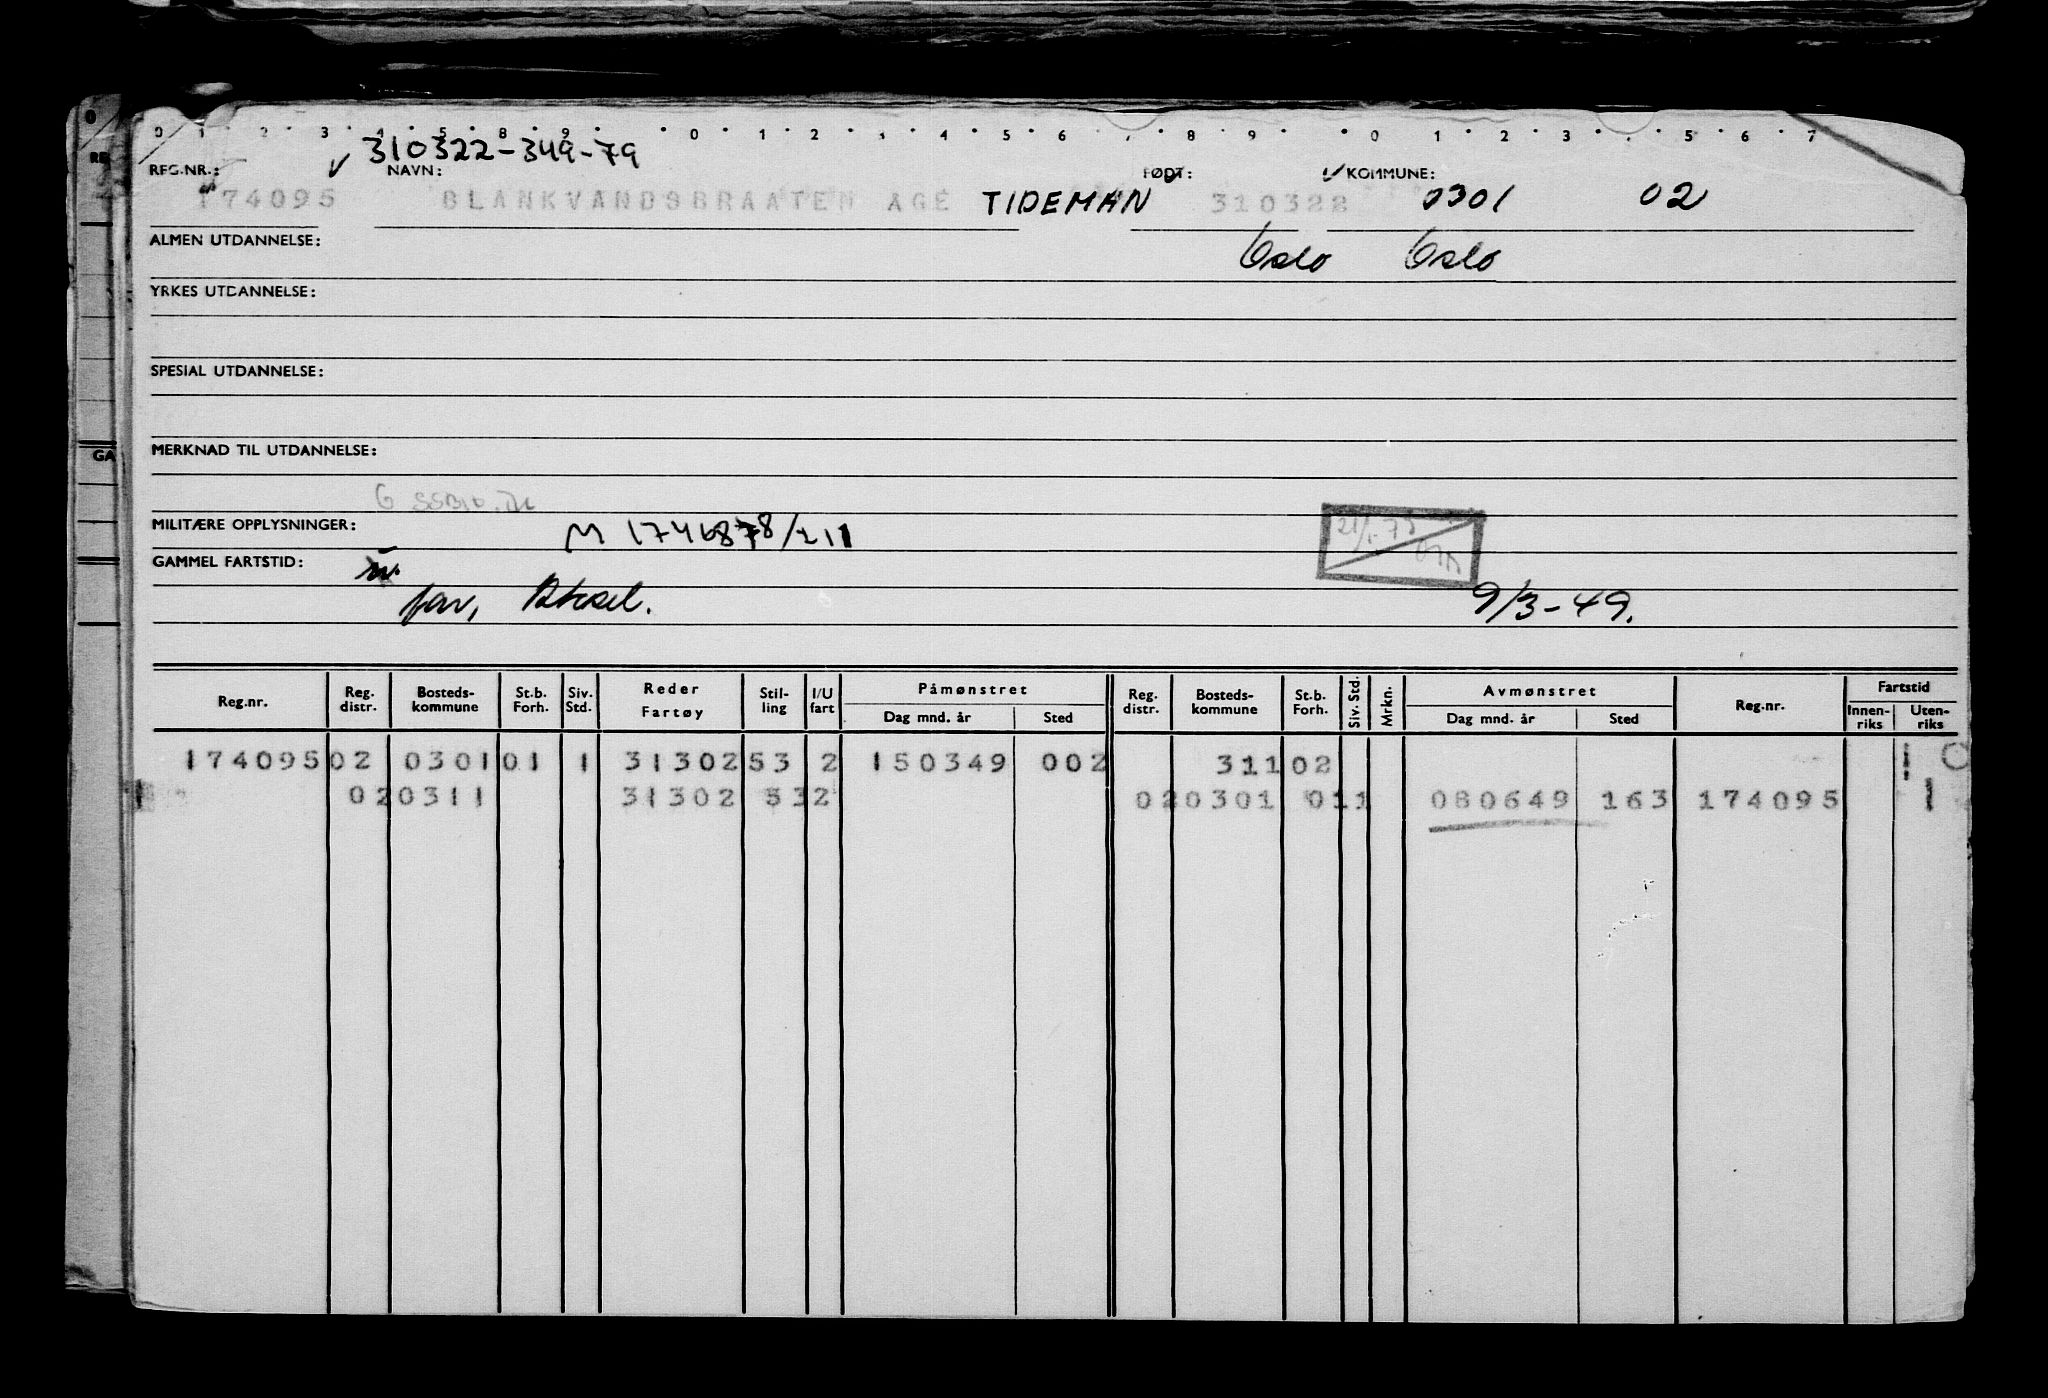 0 1 2 3 4 5 8 9 0 1 2 3 4 5 6 7 8 9 0 1 2 3 4 5 6 7
310322-349-79
REG.NR.: NAVN: FØDT: KOMMUNE:
174095 BLANKVANDSBRAATEN AGE TIDEMAN 310322 0301 02
ALMEN UTDANNELSE: Oslo Oslo
YRKES UTDANNELSE:
SPESIAL UTDANNELSE:
MERKNAD TIL UTDANNELSE:
MILITÆRE OPPLYSNINGER:
GAMMEL FARTSTID:
far, Aksel. 9/3-49.
Reg.nr. Reg. distr. Bosteds-kommune St.b. Forh. Siv. Std. Reder Fartøy Stil-ling I/U fart Påmønstret Dag mnd. år Sted Reg. distr. Bosteds-kommune St.b. Forh. Siv. Std. Mrkn. Avmønstret Dag mnd. år Sted Reg.nr. Fartstid Innen-riks Uten-riks
174095 02 0301 01 1 31302 53 2 150349 002 311 02 1
02 0311 31302 53 2 02 0301 01 1 080649 163 174095 1